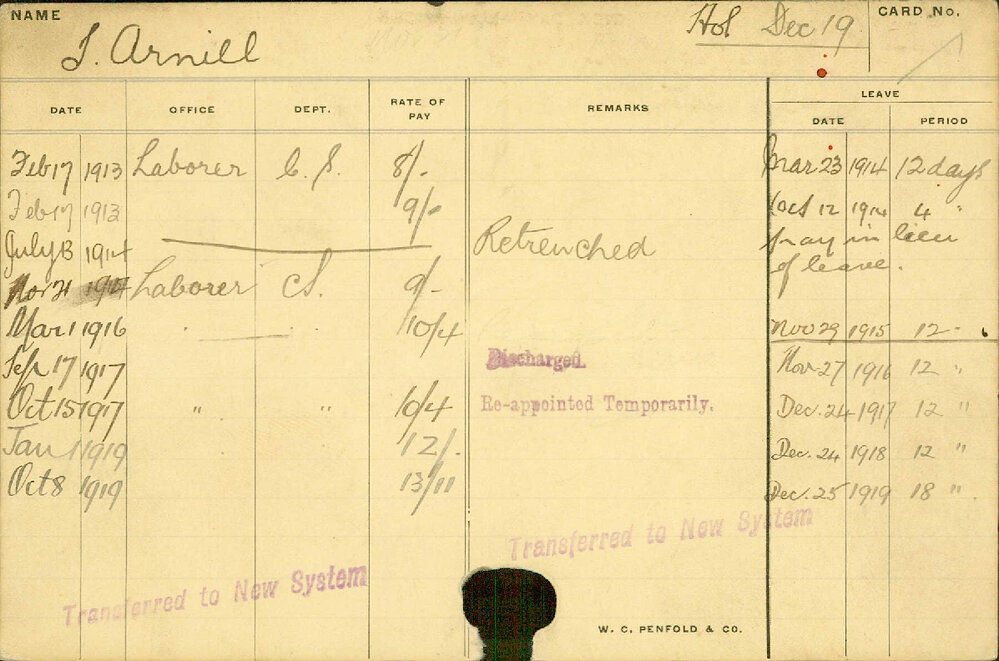 NAME
J. Arnill
Hol Dec 19
CARD No.
DATE OFFICE DEPT. RATE OF PAY REMARKS LEAVE
DATE PERIOD
Feb 17 1913 Laborer C.S. 8/- Mar 23 1914 12 days
Feb 17 1913 9/- Oct 12 1914 4 "
July 13 1914 Retrenched pay in lieu
of leave.
Nov 21 1914 Laborer C.S. 9/-
Mar 1 1916 " " 10/4 Nov 29 1915 12 "
Sep 17 1917 Discharged. Nov 27 1916 12 "
Oct 15 1917 " " 10/4 Re-appointed Temporarily. Dec. 24 1917 12 "
Jan 1 1919 12/- Dec. 24 1918 12 "
Oct 8 1919 13/11 Dec. 25 1919 18 "
Transferred to New System
Transferred to New System
W. C. PENFOLD & CO.